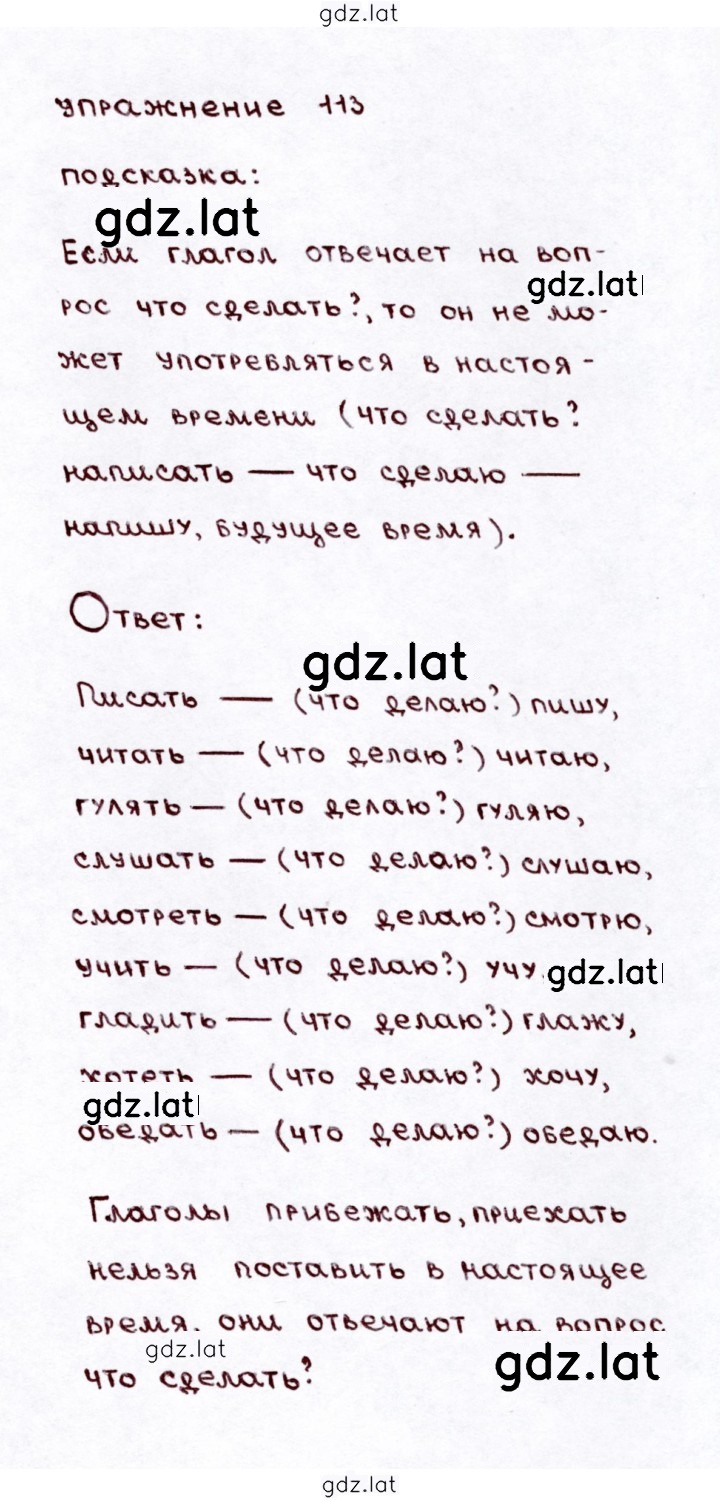 gdz.lat
упражнение 113
подсказка:
gdz.lat
Если глагол отвечает на воп-
gdz.lat
рос что сделать?, то он не мо-
жет употребляться в настоя-
щем времени (что сделать?
написать — что сделаю —
напишу, будущее время).
Ответ:
gdz.lat
Писать — (что делаю?) пишу,
читать — (что делаю?) читаю,
гулять — (что делаю?) гуляю,
слушать — (что делаю?) слушаю,
смотреть — (что делаю?) смотрю,
учить — (что делаю?) учу gdz.lat
гладить — (что делаю?) глажу,
хотеть — (что делаю?) хочу,
gdz.lat
обедать — (что делаю?) обедаю.
Глаголы прибежать, приехать
нельзя поставить в настоящее
время. они отвечают на вопрос
gdz.lat
что сделать?
gdz.lat
gdz.lat